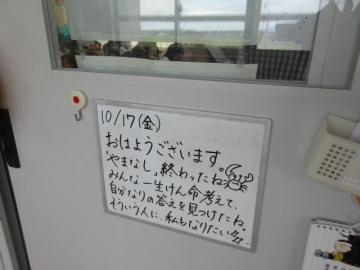 10/17(金)
おはようございます。
「やまなし」終わったね。
みんな一生けん命考えて、
自分なりの答えを見つけたね。
そういう人に、私もなりたい